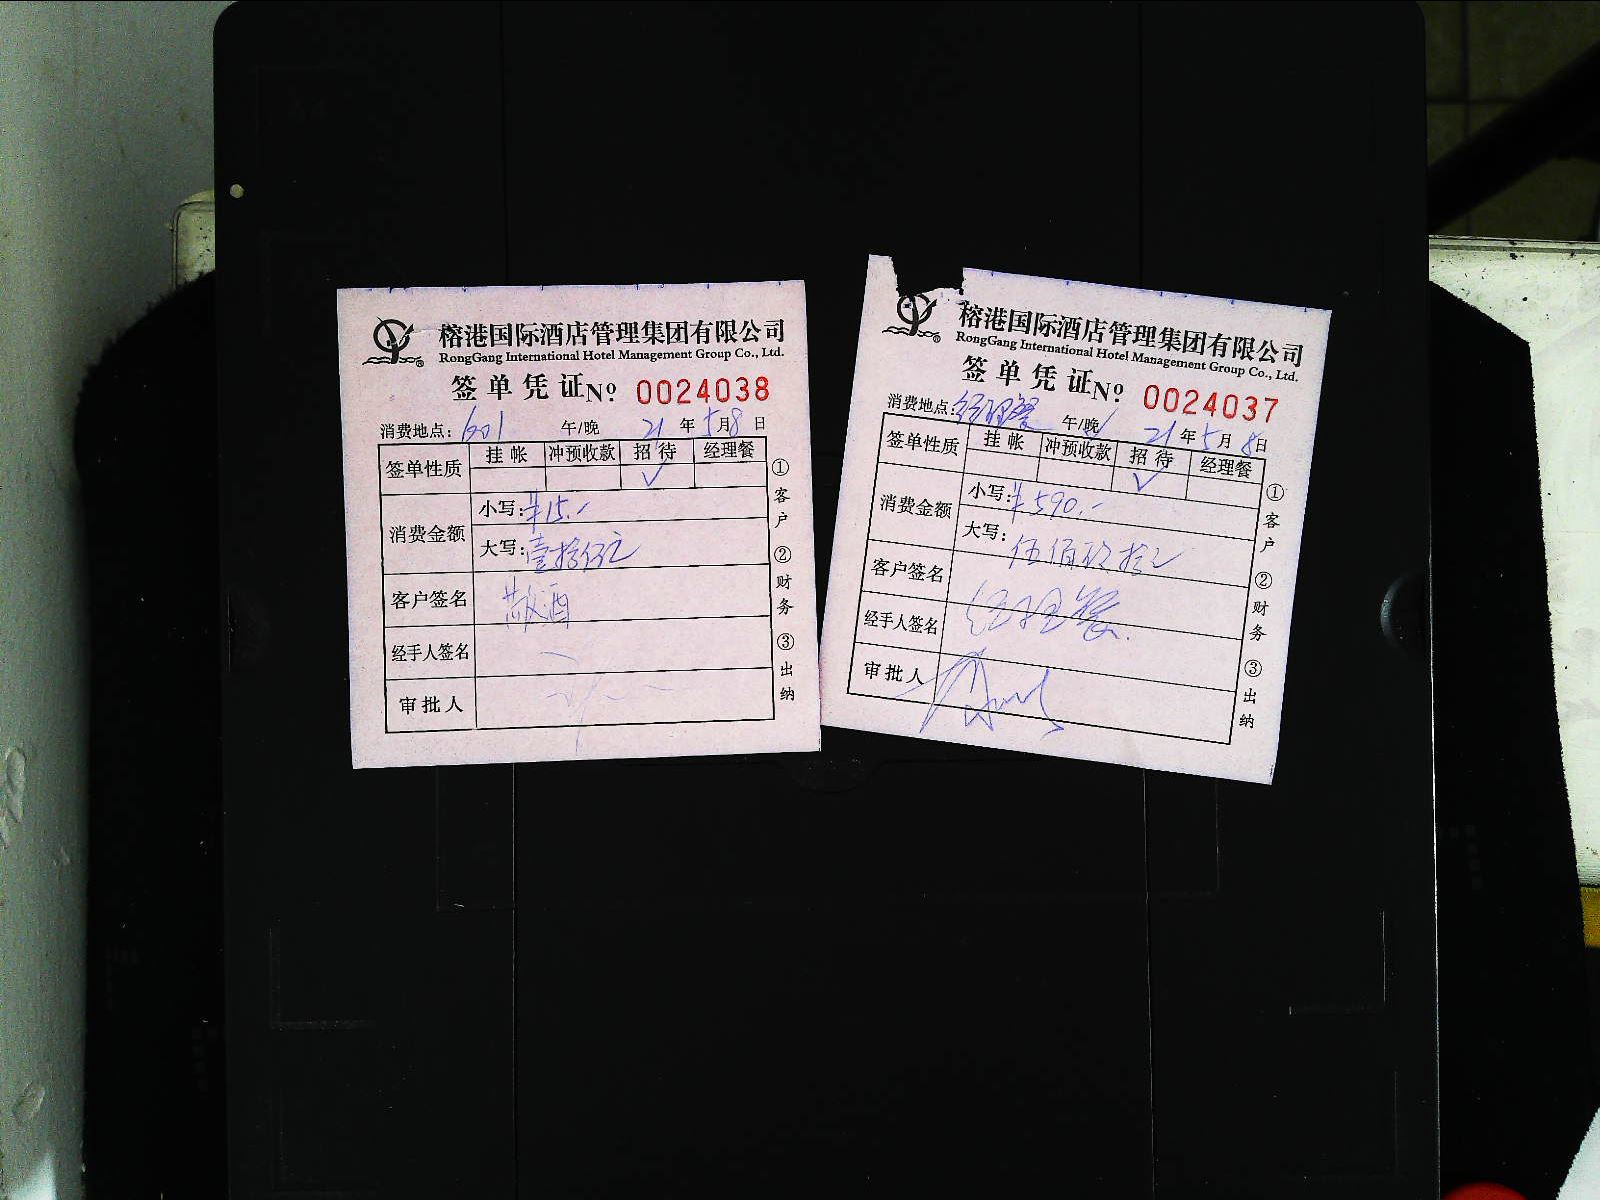 榕港国际酒店管理集团有限公司
RongGang International Hotel Management Group Co., Ltd.
签单凭证 No. 0024038
消费地点: 601 午/晚 21 年 5 月 8 日
签单性质 挂帐 冲预收款 招待 经理餐
✓
消费金额 小写: ¥15.-
大写: 壹拾伍元
客户签名 散酒
经手人签名
审批人
① 客户 ② 财务 ③ 出纳
榕港国际酒店管理集团有限公司
RongGang International Hotel Management Group Co., Ltd.
签单凭证 No. 0024037
消费地点: 经理餐 午/晚 ✓ 21 年 5 月 8 日
签单性质 挂帐 冲预收款 招待 经理餐
✓
消费金额 小写: ¥590.-
大写: 伍佰玖拾元
客户签名 经理餐.
经手人签名
审批人
① 客户 ② 财务 ③ 出纳